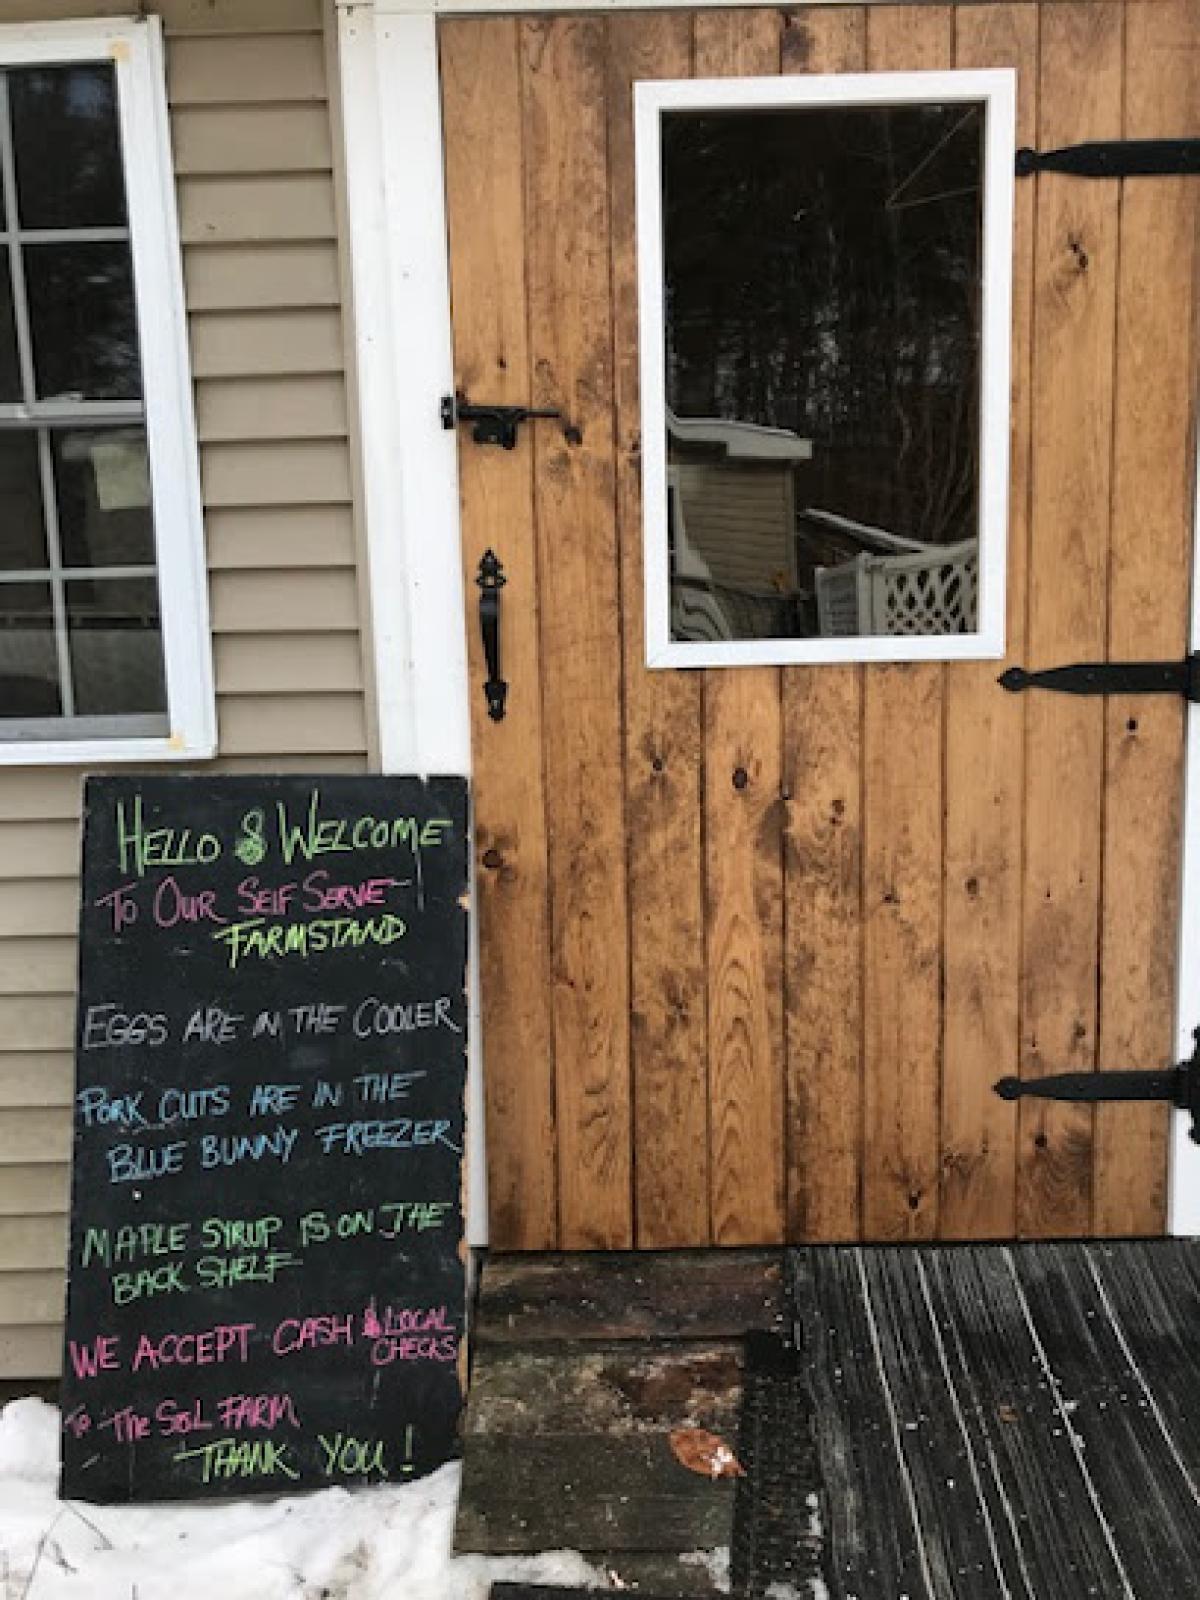 HELLO & WELCOME
TO OUR SELF SERVE
FARMSTAND
EGGS ARE IN THE COOLER
PORK CUTS ARE IN THE
BLUE BUNNY FREEZER
MAPLE SYRUP IS ON THE
BACK SHELF
WE ACCEPT CASH & LOCAL
CHECKS
TO THE SOL FARM
THANK YOU!